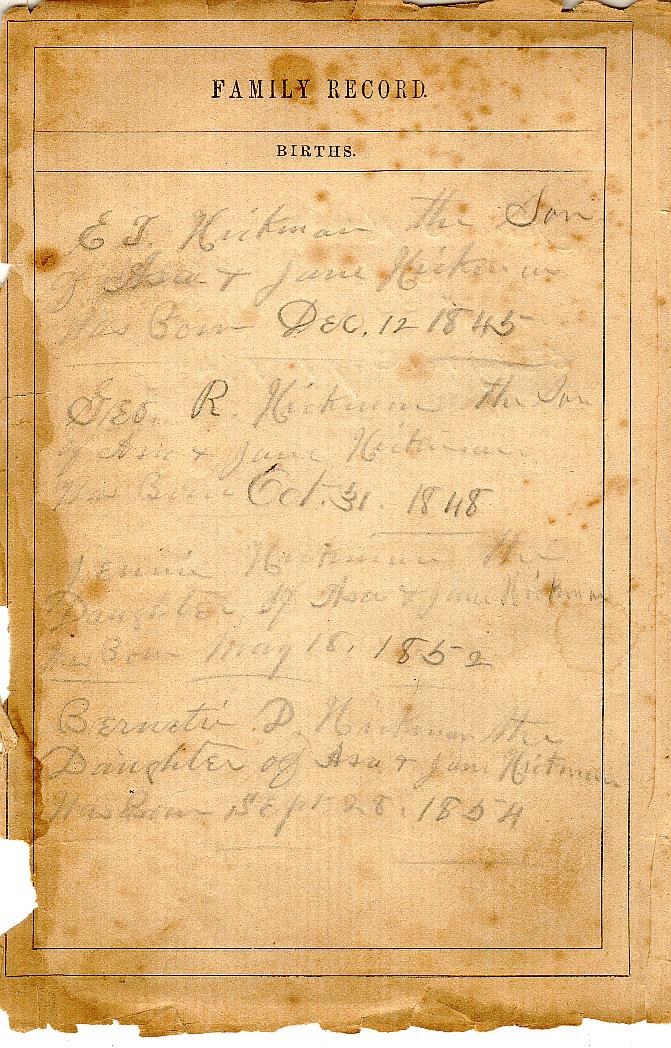 FAMILY RECORD.
BIRTHS.
E T. Hickman the Son
of Asa & Jane Hickman
Was Born Dec, 12 1845
Geo. R. Hickman the Son
of Asa & Jane Hickman
Was Born Oct. 31. 1848
Jennie Hickman the
Daughter of Asa & Jane Hickman
Was Born May 18. 1852
D. Hickman the
Daughter of Asa & Jane Hickman
Was Born Sept 28. 1854